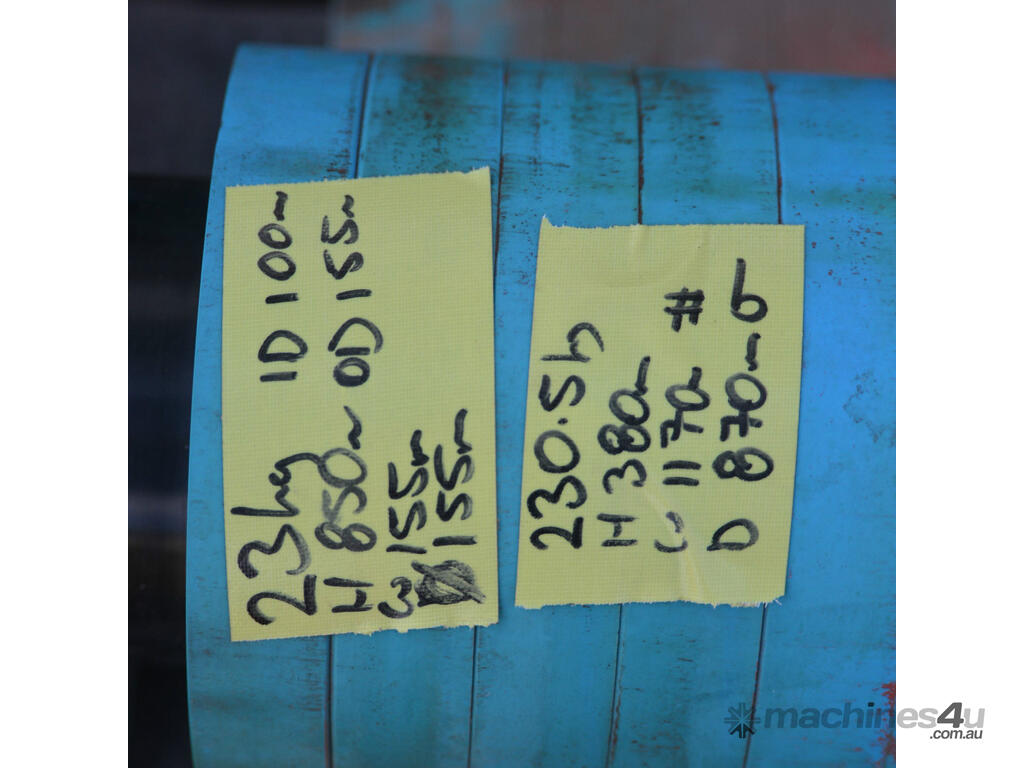 23kg ID 100m
H 850m OD 155m
W 155m
155m
230.5k
H 380m
W 1170m #
D 870m 6
machines4u
.com.au